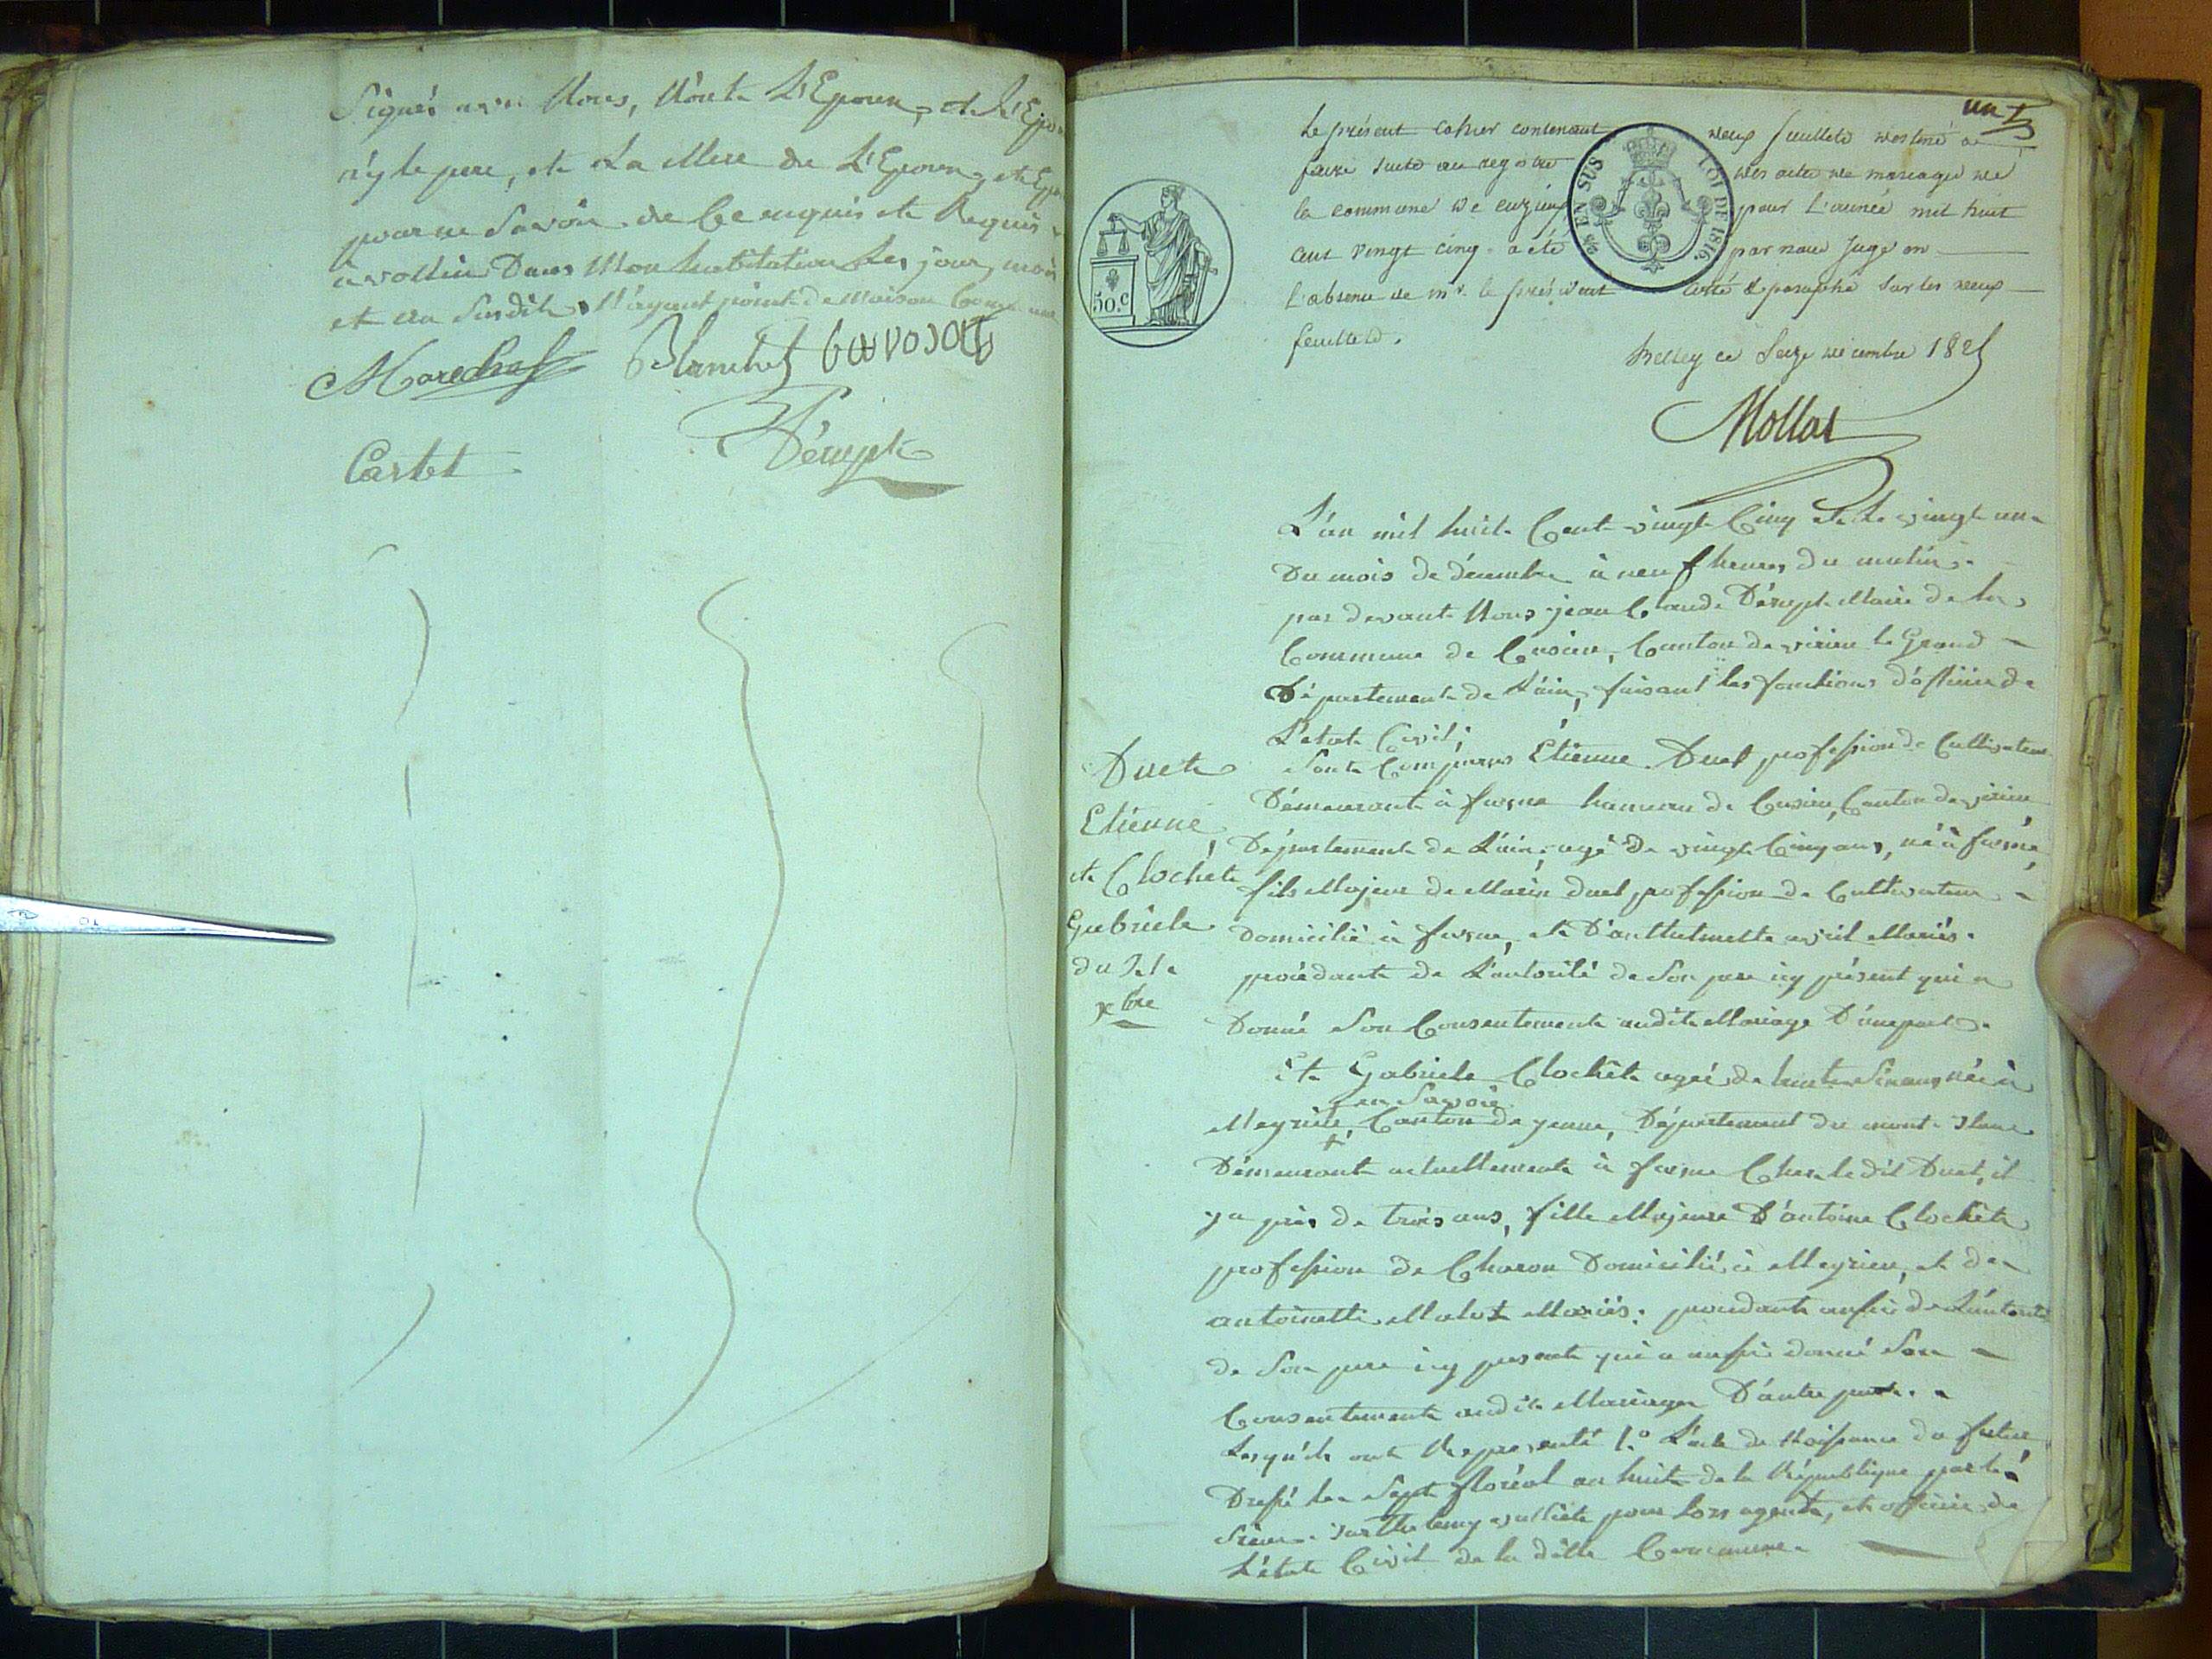 Signés avec Nous, Non L'Epoux, et L'Epou
n'y le pere, et La Mere de L'Epoux, et Epou
pour ne Savoir de Ce enquis et Requis
à vollien Dans Mon habitation Les jour, mois
et an Susdits, N'ayant point de Maison Comune
Marechal Blanchet
Cartet Dérupt
un
Le présent cahier contenant deux feuillets destiné à
faire suite au registre des actes de mariages de
la commune de cuzieu pour L'année mil huit
cent vingt cinq a été par nous Juge en
l'absence de mr. le président coté & paraphé sur les deux
feuillets.
50.c
EN SUS
LOI DE 1816.
Belley ce Seize décembre 1825
Mollat
L'an mil huit Cent vingt Cinq et Le vingt un
Du mois de décembre à neuf heures du matin.
par devant Nous jean Claude Dérupt Maire de la
Commune de Cusieu, Canton de virieu le Grand
Département de L'ain, faisant les fonctions d'officier de
L'etat Civil;
Sont Comparus Etienne Duet profession de Cultivateur
Démeurant à hameau de Cusieu, Canton de virieu
Département de L'ain, agé de vingt Cinq ans, né à
fils Majeur de Marin duet profession de Cultivateur
Domicilié à et Mariés.
procédant de L'autorité de Son pere icy présent qui a
Donné Son Consentement audit Mariage D'une part.
Duet
Etienne,
et Clochet
Gabriele
du 21
xbre
Et Gabriele Clochet agée de trente Six ans née à
en Savoie
Meyrieu, Canton de yenne, Département du mont-blanc
Démeurant actuellement à Chez le dit Duet, il
y a près de trois ans, fille Majeure D'antoine Clochet
profession de Charon Domicilié à Meyrieu, et de
antoinette Malot Mariés; procédant aussi de L'autorité
de Son pere icy present qui a aussi donné Son
Consentement audit Mariage D'autre part.
Lesquels ont Representé 1.° L'acte de Naissance du futur
Dressé Le Sept floréal an huit de la République par le
Sieur Barthelemy pour lors agent, et officier de
L'état Civil de la ditte Commune.